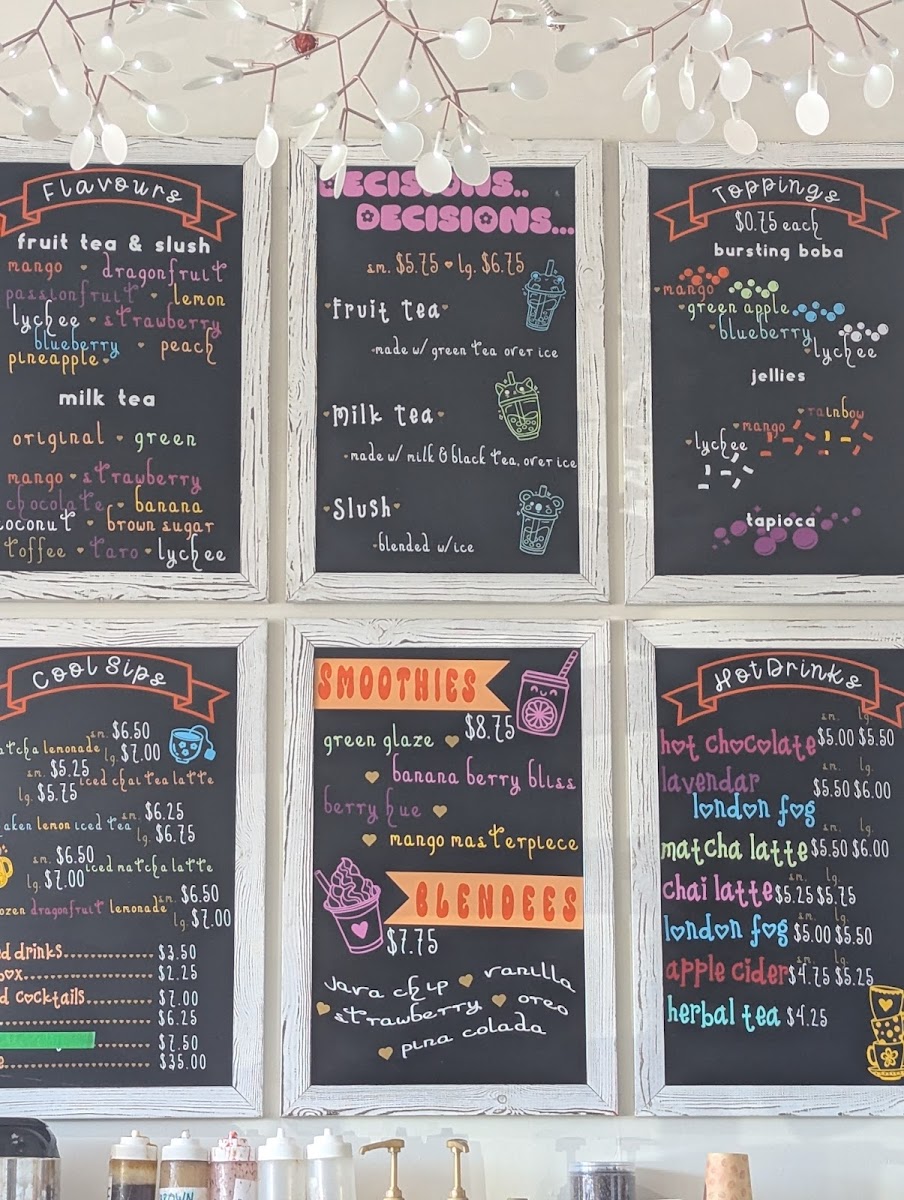 Flavours
fruit tea & slush
mango dragonfruit
passionfruit lemon
lychee strawberry
blueberry peach
pineapple
milk tea
original green
mango strawberry
chocolate banana
oconut brown sugar
toffee taro lychee
DECISIONS..
DECISIONS...
sm. $5.75 lg. $6.75
Fruit tea
made w/ green tea over ice
Milk tea
made w/ milk & black tea, over ice
Slush
blended w/ice
Toppings
$0.75 each
bursting boba
mango
green apple
blueberry
lychee
jellies
rainbow
mango
lychee
tapioca
Cool Sips
sm. $6.50
atcha lemonade lg. $7.00
sm. $5.25
lg. $5.75 iced chai tea latte
sm. $6.25
aken lemon iced tea lg. $6.75
sm. $6.50
lg. $7.00 iced matcha latte
sm. $6.50
ozen dragonfruit lemonade lg. $7.00
d drinks $3.50
box $2.25
d cocktails $7.00
$6.25
$7.50
e $35.00
SMOOTHIES
$8.75
green glaze
banana berry bliss
berry hue
mango masterpiece
BLENDEES
$7.75
java chip vanilla
strawberry oreo
pina colada
Hot Drinks
sm. lg.
hot chocolate $5.00 $5.50
sm. lg.
lavendar $5.50 $6.00
london fog
sm. lg.
matcha latte $5.50 $6.00
sm. lg.
chai latte $5.25 $5.75
sm. lg.
london fog $5.00 $5.50
sm. lg.
apple cider $4.75 $5.25
herbal tea $4.25